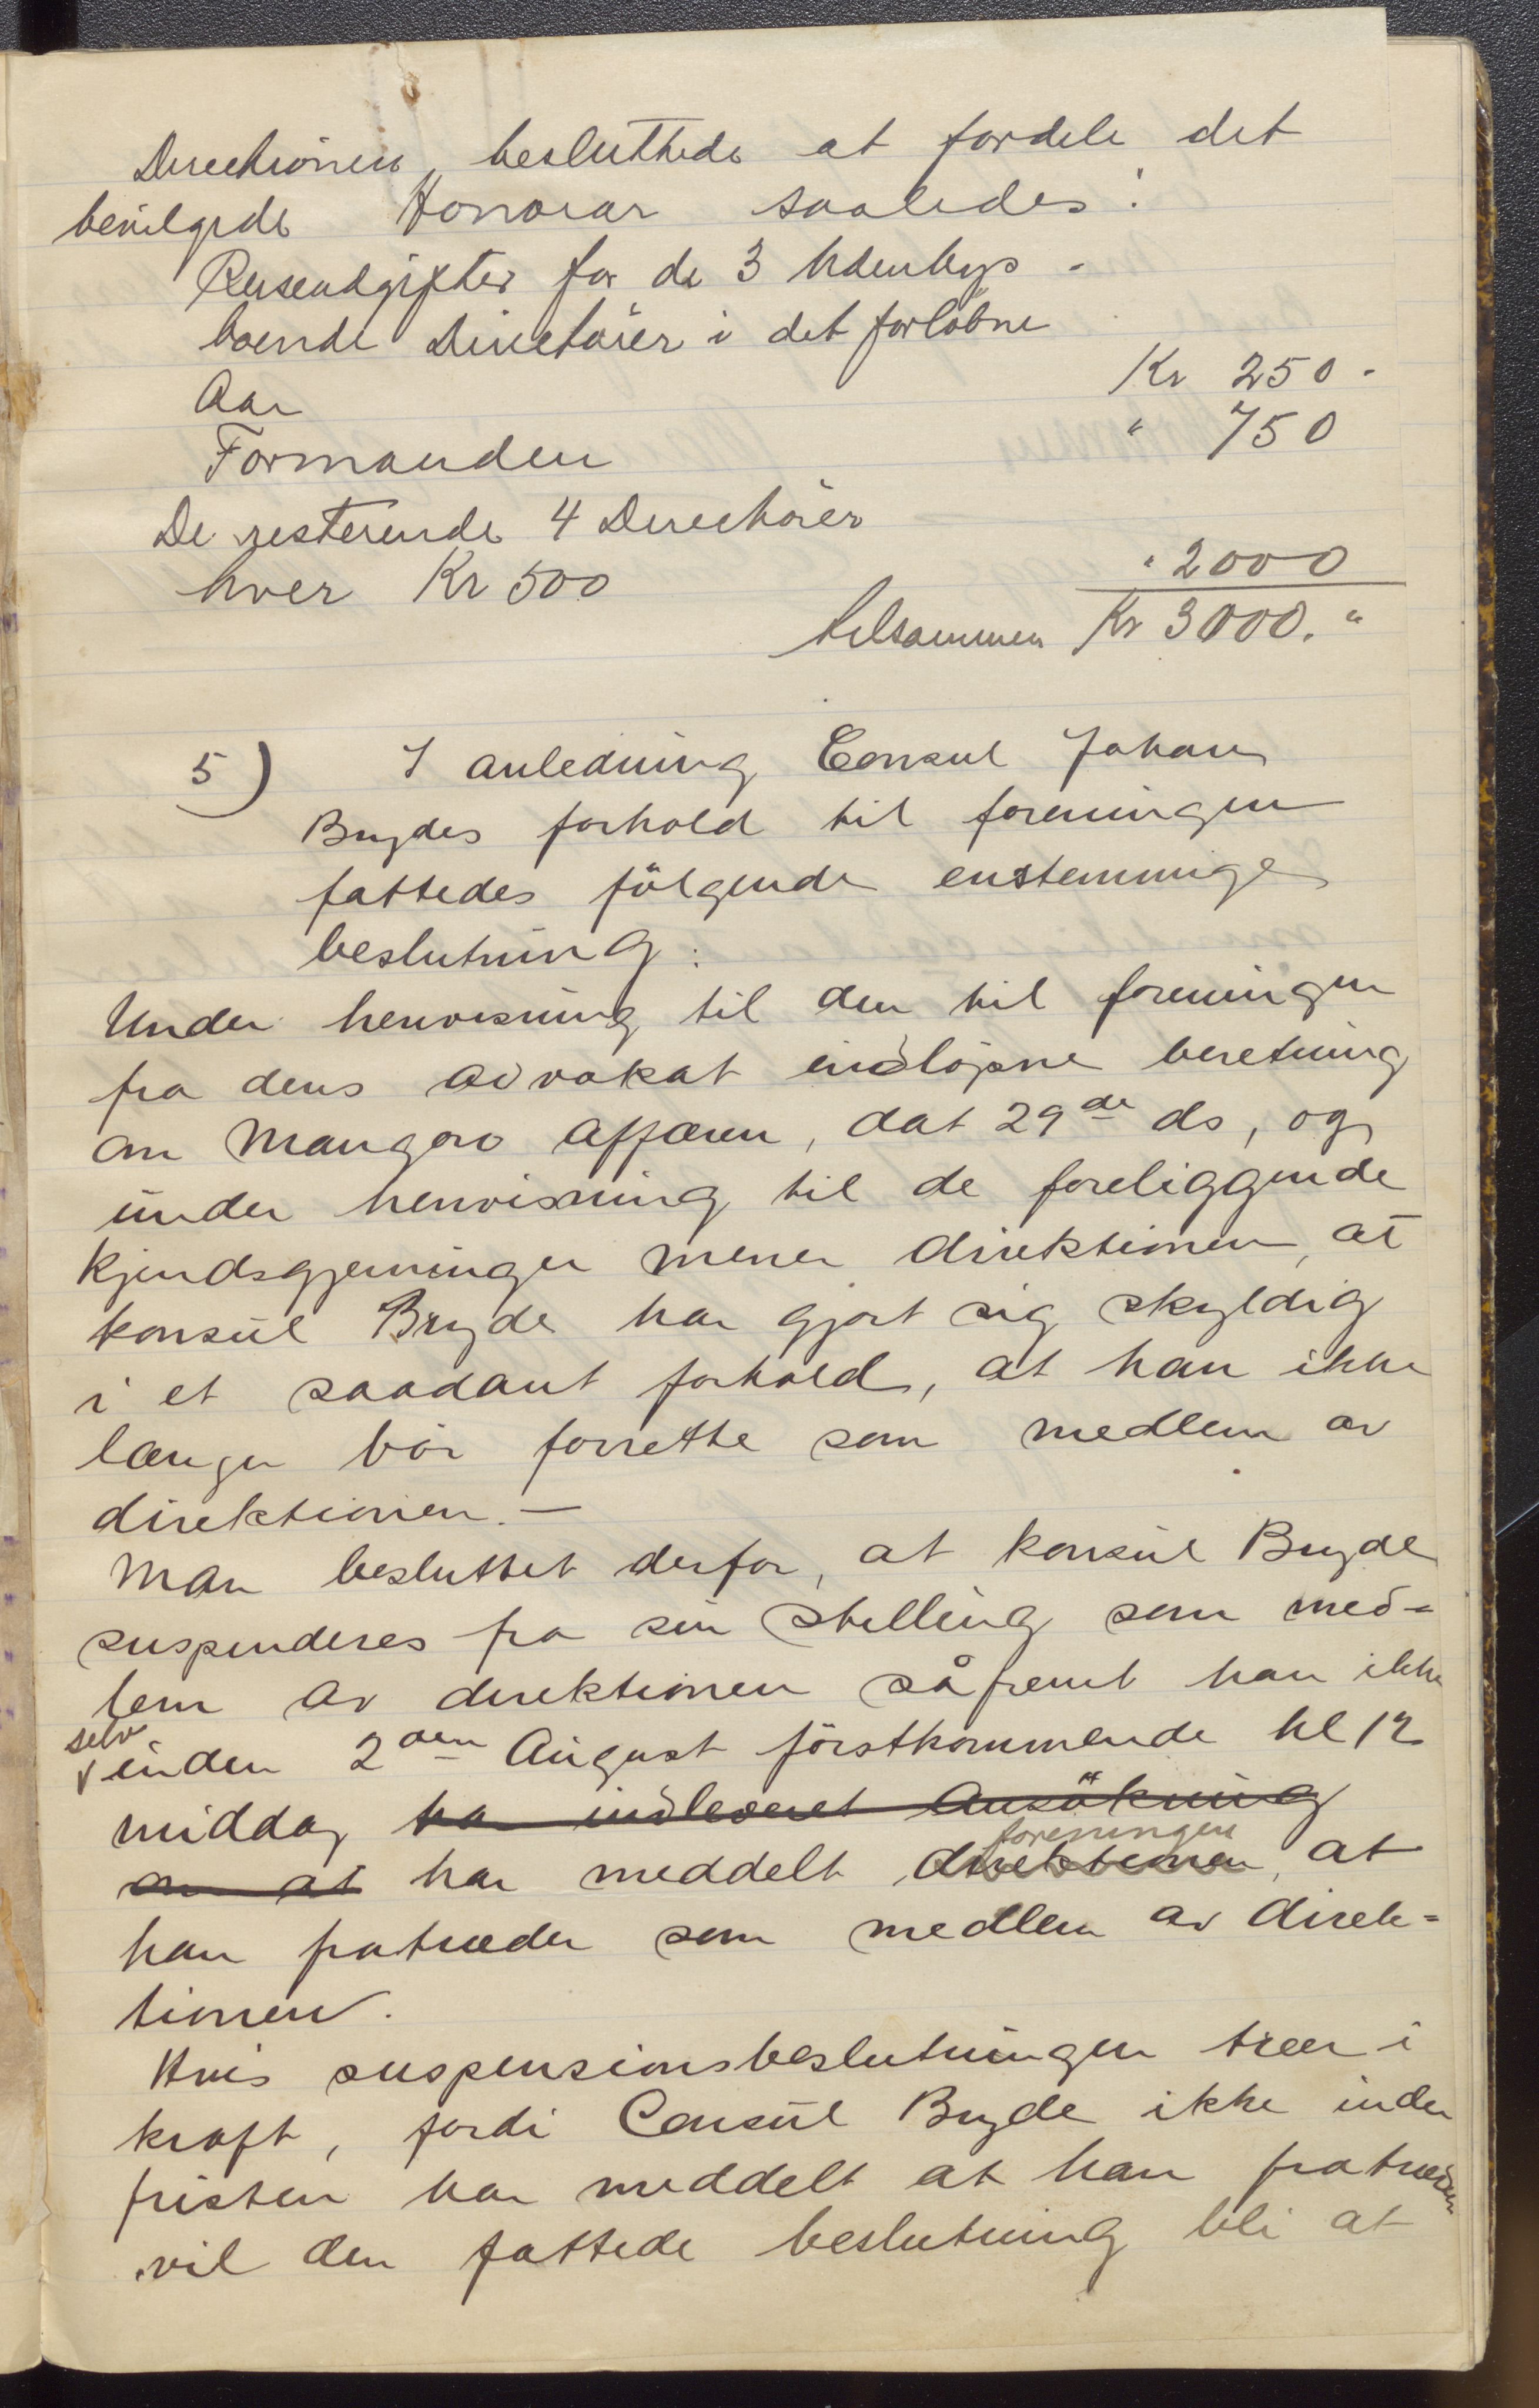 Directionen besluttede at fordele det
bevilgede Honorar saaledes:
Reiseudgifter for de 3 Udenbys-
boende Directører i det forløbne
Aar Kr 250.
Formanden " 750
De resterende 4 Directører
hver Kr 500 " 2000
tilsammen Kr 3000. "
5) I anledning Consul Johan
Brydes forhold til foreningen
fattedes følgende enstemmige
beslutning:
Under henvisning til den til foreningen
fra dens advokat indløpne beretning
om Mangoro affæren, dat 29de ds, og
under henvisning til de foreliggende
kjendsgjerninger mener direktionen, at
konsul Bryde har gjort sig skyldig
i et saadant forhold, at han ikke
længer bør forrette som medlem av
direktionen. —
Man besluttet derfor, at konsul Bryde
suspenderes fra sin stilling som med-
lem av direktionen såfremt han ikke
selv inden 2den August førstkommende kl 12
middag har indleveret Ansøkning
om at har meddelt direktionen foreningen, at
han fratræder som medlem av direk-
tionen.
Hvis suspensionsbeslutningen træer i
kraft, fordi Consul Bryde ikke inden
fristen har meddelt at han fratræder
vil den fattede beslutning bli at